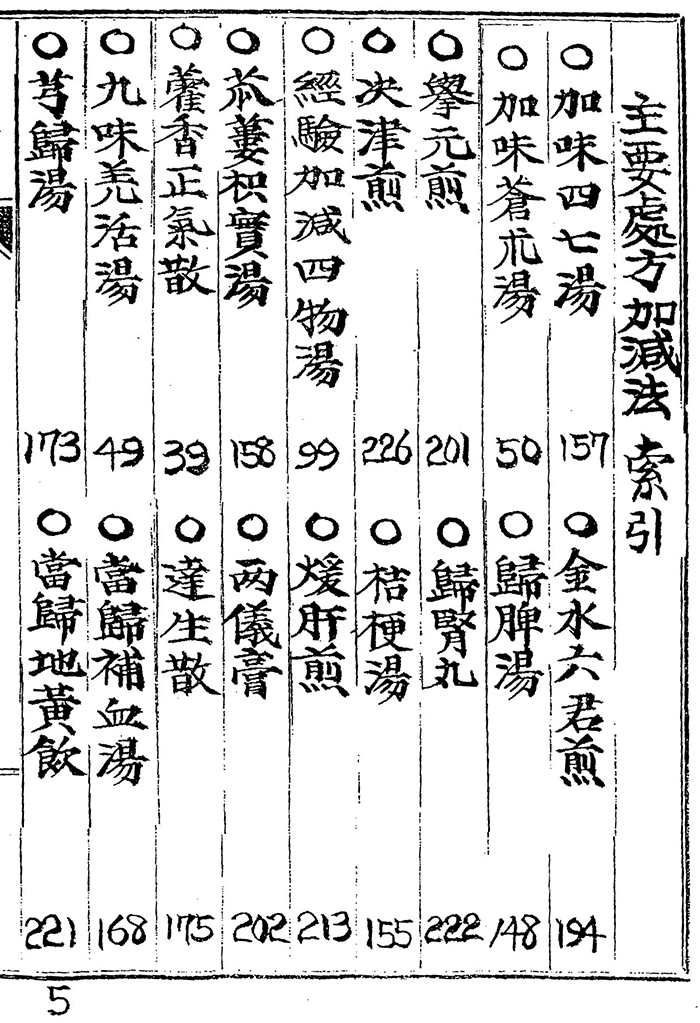 主要處方加減法 索引
○加味四七湯 157
○金水六君煎 194
○加味蒼朮湯 50
○歸脾湯 148
○擧元煎 201
○歸腎丸 222
○决津煎 226
○桔梗湯 155
○經驗加減四物湯 99
○煖肝煎 213
○苽蔞枳實湯 158
○两儀膏 202
○藿香正氣散 39
○達生散 175
○九味羌活湯 49
○當歸補血湯 168
○芎歸湯 173
○當歸地黃飮 221
5